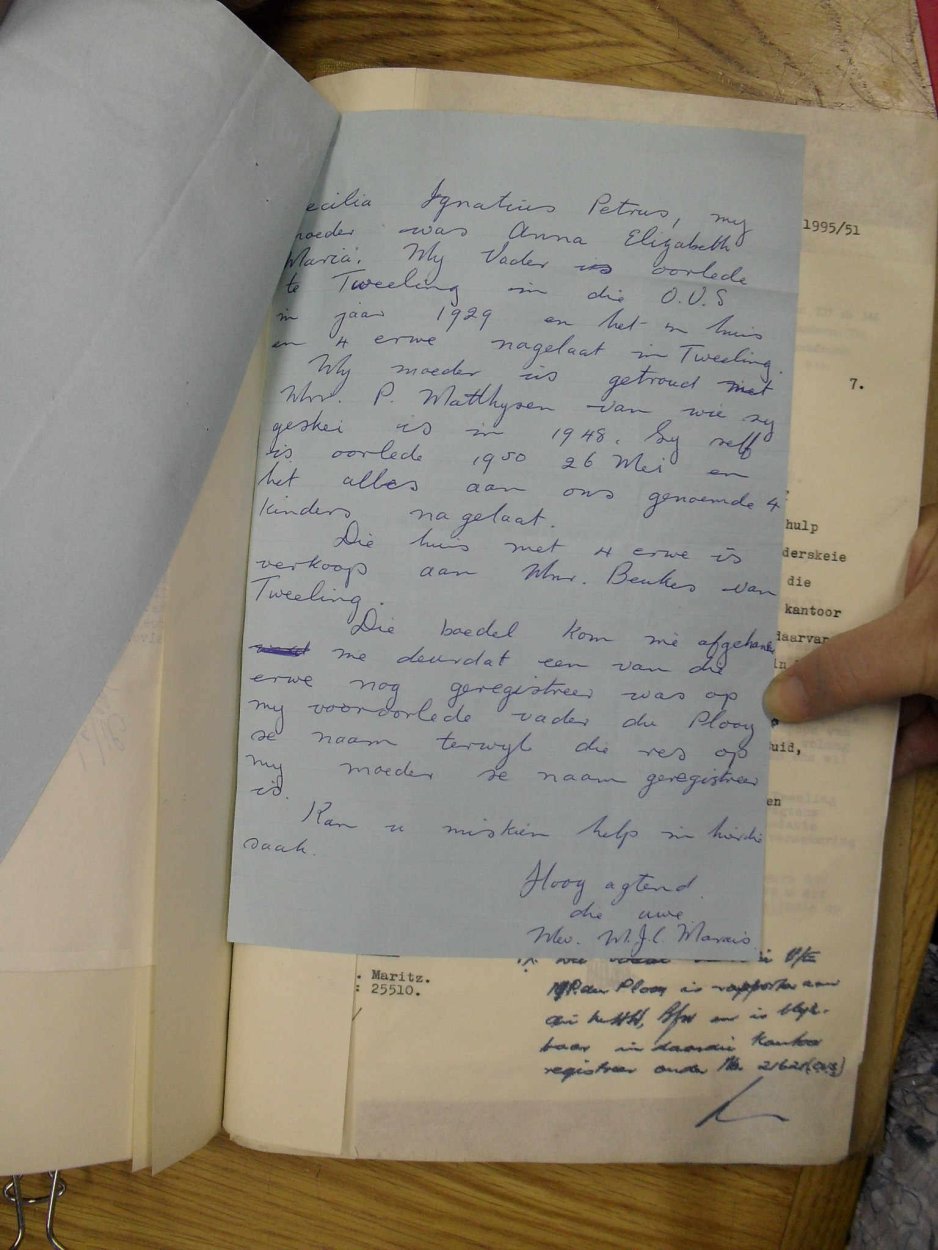 ecilia Ignatius Petrus, my
moeder was Anna Elizabeth
Maria. My Vader is oorlede
te Tweeling in die O.V.S
in jaar 1929 en het 'n huis
en 4 erwe nagelaat in Tweeling.
My moeder is getroud met
Mnr. P. Matthysen van wie sy
geskei is in 1948. Sy self
is oorlede 1950 26 Mei en
het alles aan ons genoemde 4
kinders nagelaat.
Die huis met 4 erwe is
verkoop aan Mnr. Beukes van
Tweeling.
Die boedel kom nie afgehandel
nie deurdat een van die
erwe nog geregistreer was op
my vooroorlede vader du Plooy
se naam terwyl die res op
my moeder se naam geregistreer
is.
Kan u miskien help in hierdie
saak.
Hoog agtend
die uwe
Mev. M.J.C. Marais
1995/51
7.
hulp
derskeie
die
kantoor
daarvan
in
uid,
en
. Maritz.
: 25510.
du Plooy is rapporteer aan
die
baar in daardie kantoor
registreer onder No.